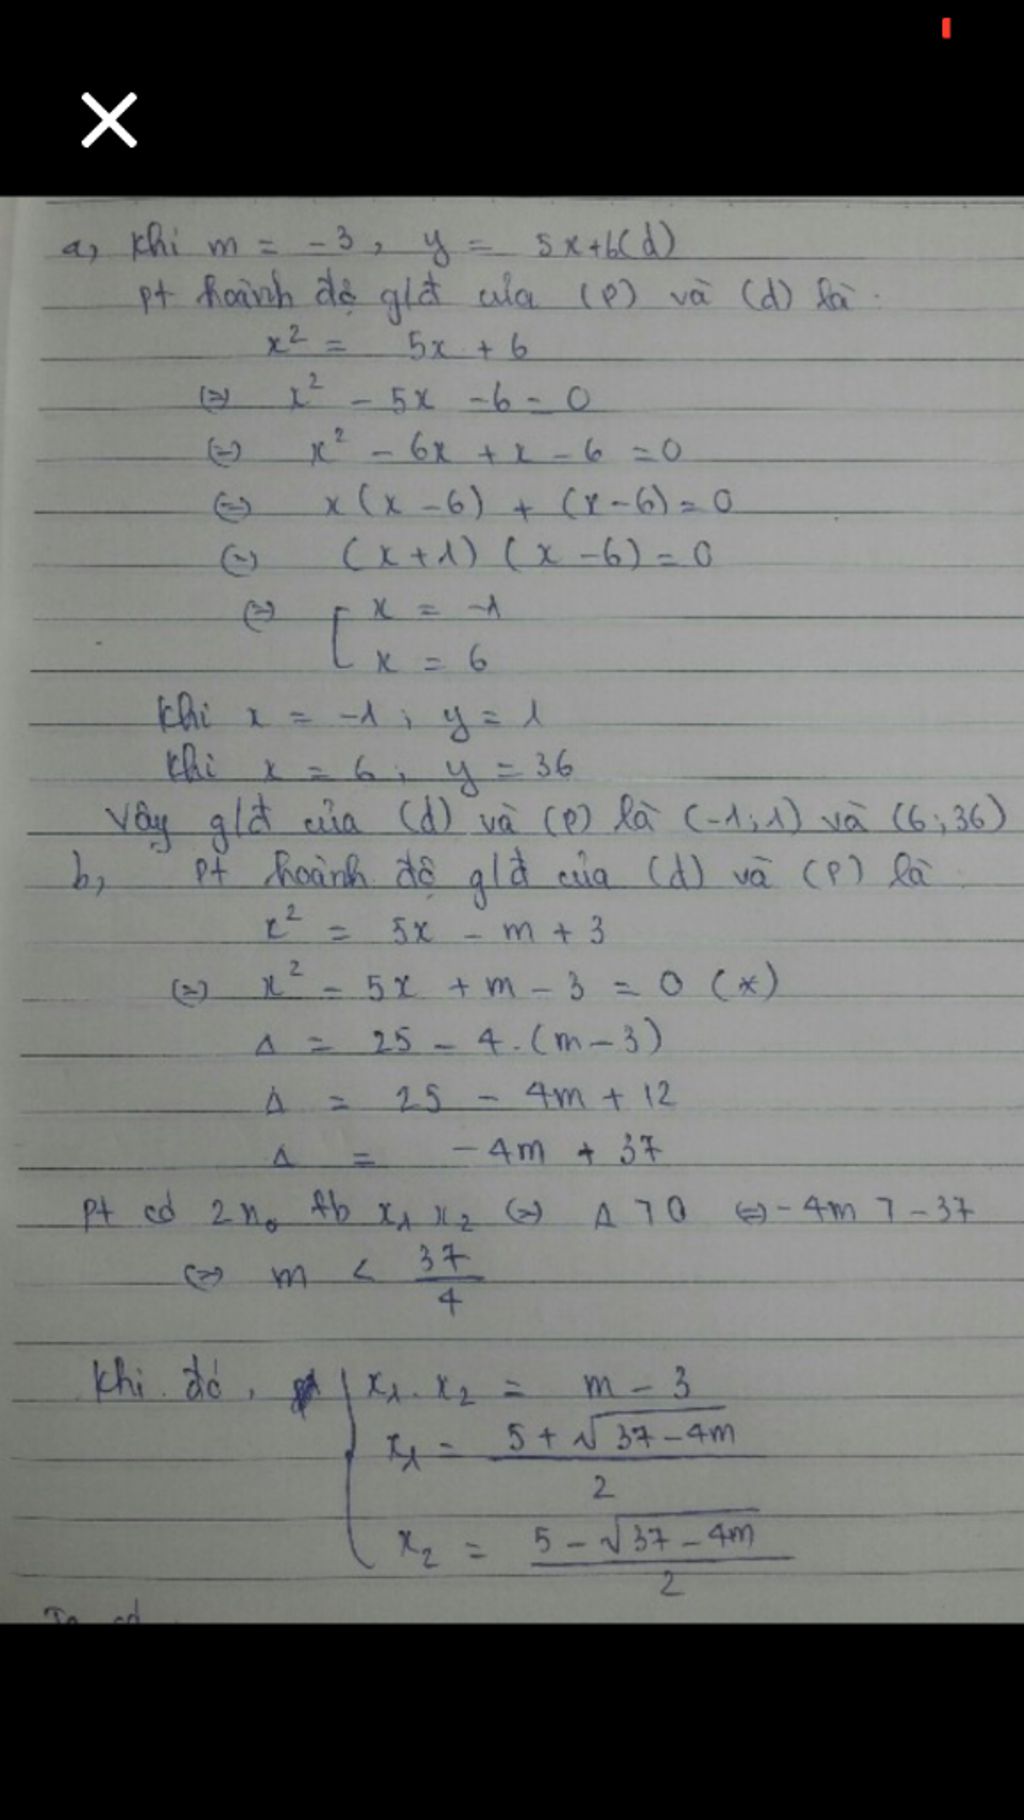 a, Khi m = -3, y = 5x+6(d)
pt hoành độ g/đ của (P) và (d) là:
x² = 5x + 6
(=) x² - 5x - 6 = 0
(=) x² - 6x + x - 6 = 0
(=) x(x - 6) + (x - 6) = 0
(=) (x + 1) (x - 6) = 0
(=) [ x = -1
x = 6
Khi x = -1; y = 1
Khi x = 6; y = 36
Vậy g/đ của (d) và (P) là (-1; 1) và (6; 36)
b, pt hoành độ g/đ của (d) và (P) là
x² = 5x - m + 3
(=) x² - 5x + m - 3 = 0 (*)
Δ = 25 - 4.(m - 3)
Δ = 25 - 4m + 12
Δ = -4m + 37
pt có 2 no fb x₁ x₂ (=) Δ > 0 (=) -4m > -37
(=) m < 37/4
Khi đó, { x₁ . x₂ = m - 3
x₁ = (5 + √(37 - 4m))/2
x₂ = (5 - √(37 - 4m))/2